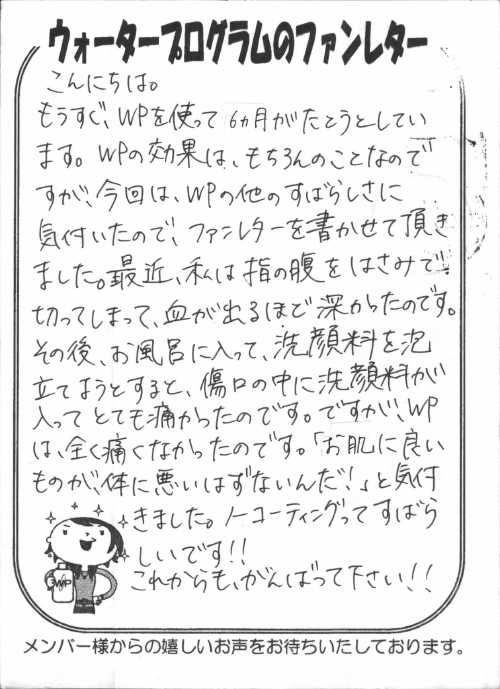 ウォータープログラムのファンレター
こんにちは。
もうすぐ、WPを使って6ヵ月がたとうとしてい
ます。WPの効果は、もちろんのことなので
すが、今回は、WPの他のすばらしさに
気付いたので、ファンレターを書かせて頂き
ました。最近、私は指の腹をはさみで
切ってしまって、血が出るほど深かったのです。
その後、お風呂に入って、洗顔料を泡
立てようとすると、傷口の中に洗顔料が
入ってとても痛かったのです。ですが、WP
は、全く痛くなかったのです。「お肌に良い
ものが、体に悪いはずないんだ!」と気付
きました。ノーコーティングってすばら
しいです!!
これからも、がんばって下さい!!
WP
メンバー様からの嬉しいお声をお待ちいたしております。